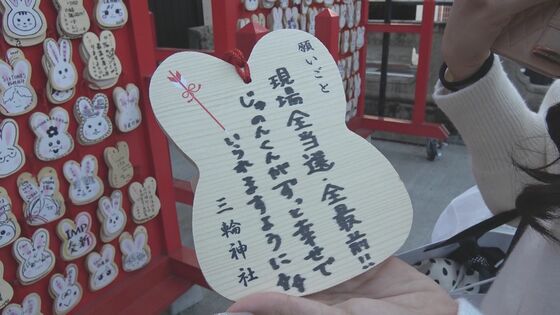 願いごと
現場全当選・全最前!!
じゅのんくんがずっと幸せで
いられますように
三輪神社